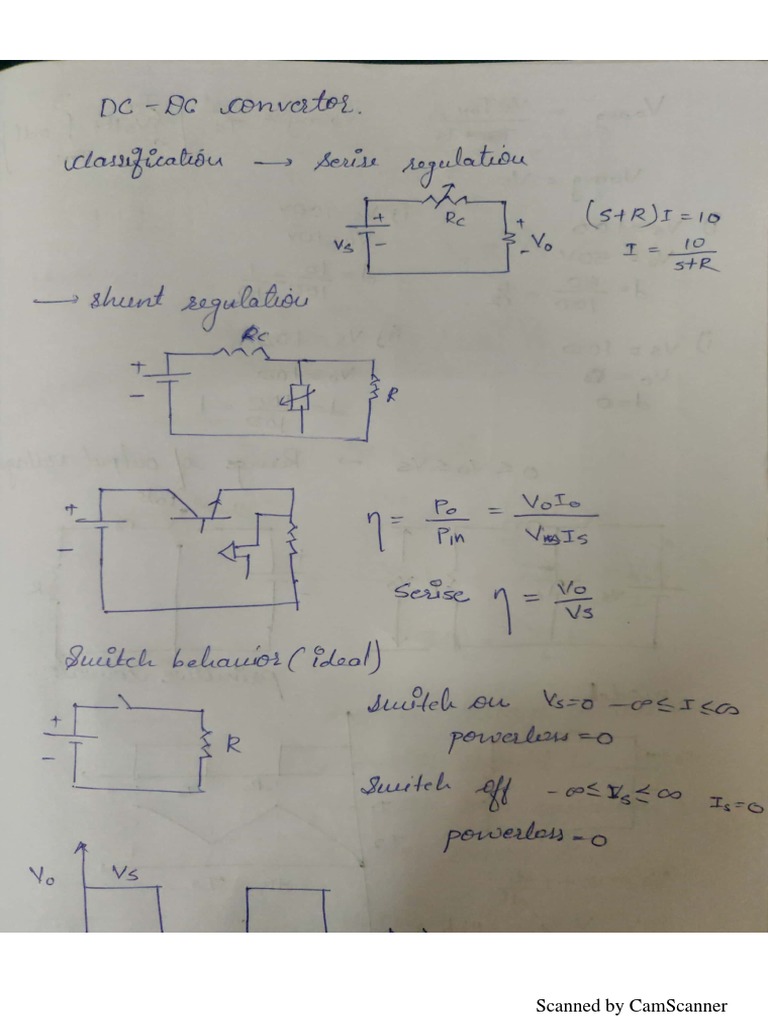 DC - DC convertor.
classification → serise regulation
Rc
+
-
Vs
+
-
Vo
(S+R)I = 10
I = 10/S+R
→ shunt regulation
Rc
+
-
R
+
-
η = Po/Pin = VoIo/VIs
serise η = Vo/Vs
Switch behavior (ideal)
+
-
R
Switch on Vs=0 -∞≤I≤∞
powerloss = 0
Switch off -∞≤Vs≤∞ Is=0
powerloss = 0
Vo
Vs
Scanned by CamScanner